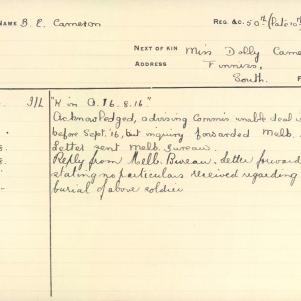 NAME B. E. Cameron REG. &C. 50th (late 10th
NEXT OF KIN Miss Dolly Came
ADDRESS Finniss,
South.
"K in A. 16.8.16"
Acknowledged, advising Commis unable deal w
before Sept. '16, but inquiry forwarded Melb.
Letter sent Melb. Bureau.
Reply from Melb. Bureau. Letter forward
stating no particulars received regarding
burial of above soldier